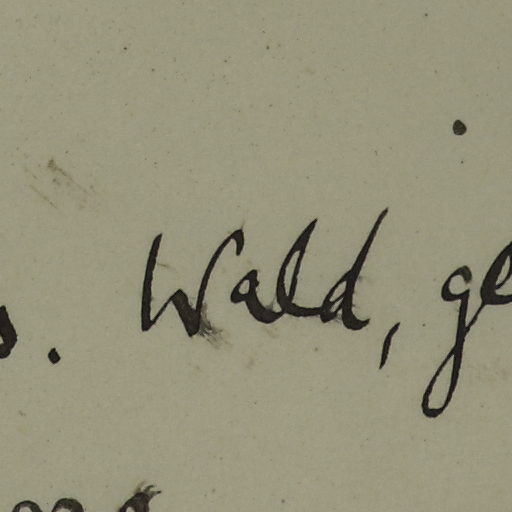 s. Wald, ge